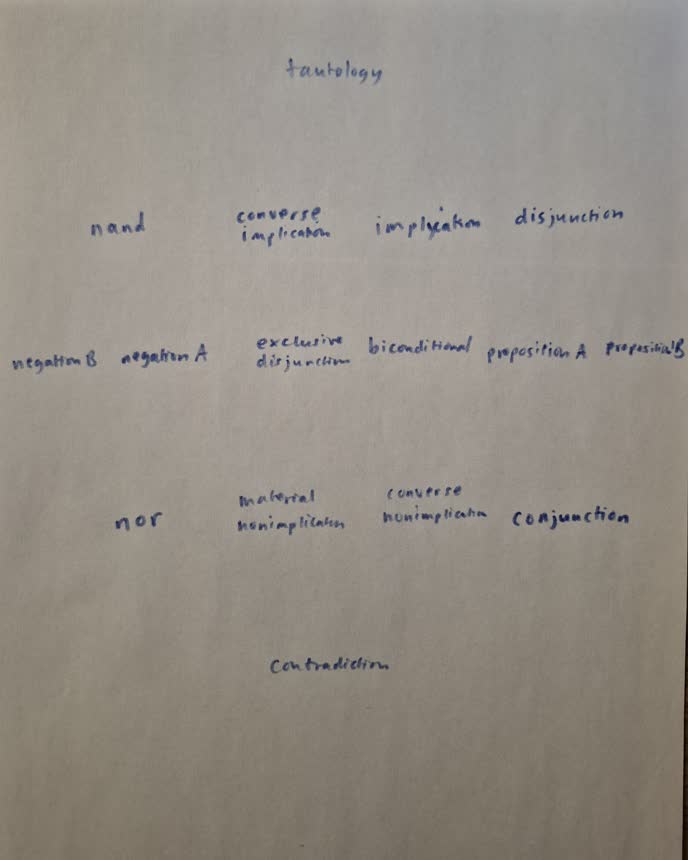 tautology
nand converse implication implication disjunction
negation B negation A exclusive disjunction biconditional proposition A proposition B
nor material nonimplication converse nonimplication conjunction
contradiction